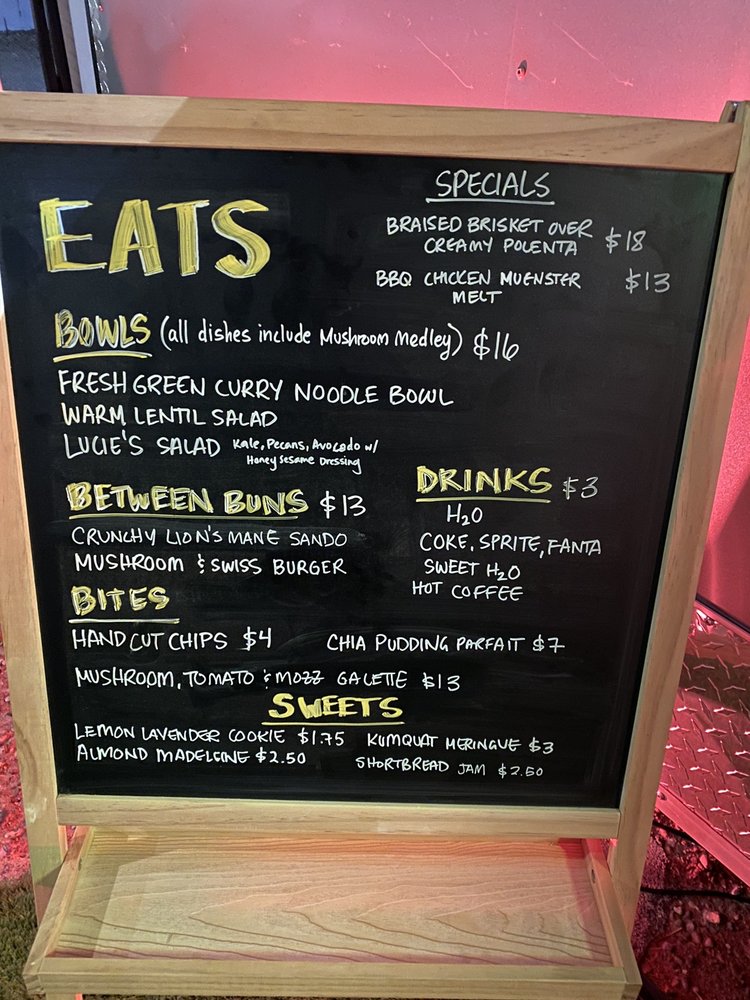 EATS
SPECIALS
BRAISED BRISKET OVER
CREAMY POLENTA $18
BBQ CHICKEN MUENSTER $13
MELT
BOWLS (all dishes include Mushroom Medley) $16
FRESH GREEN CURRY NOODLE BOWL
WARM LENTIL SALAD
LUCIE'S SALAD Kale, Pecans, Avocado w/
Honey Sesame Dressing
BETWEEN BUNS $13
CRUNCHY LION'S MANE SANDO
MUSHROOM & SWISS BURGER
DRINKS $3
H2O
COKE, SPRITE, FANTA
SWEET H2O
HOT COFFEE
BITES
HAND CUT CHIPS $4 CHIA PUDDING PARFAIT $7
MUSHROOM, TOMATO & MOZZ GALETTE $13
SWEETS
LEMON LAVENDER COOKIE $1.75 KUMQUAT MERINGUE $3
ALMOND MADELEINE $2.50 SHORTBREAD JAM $2.50